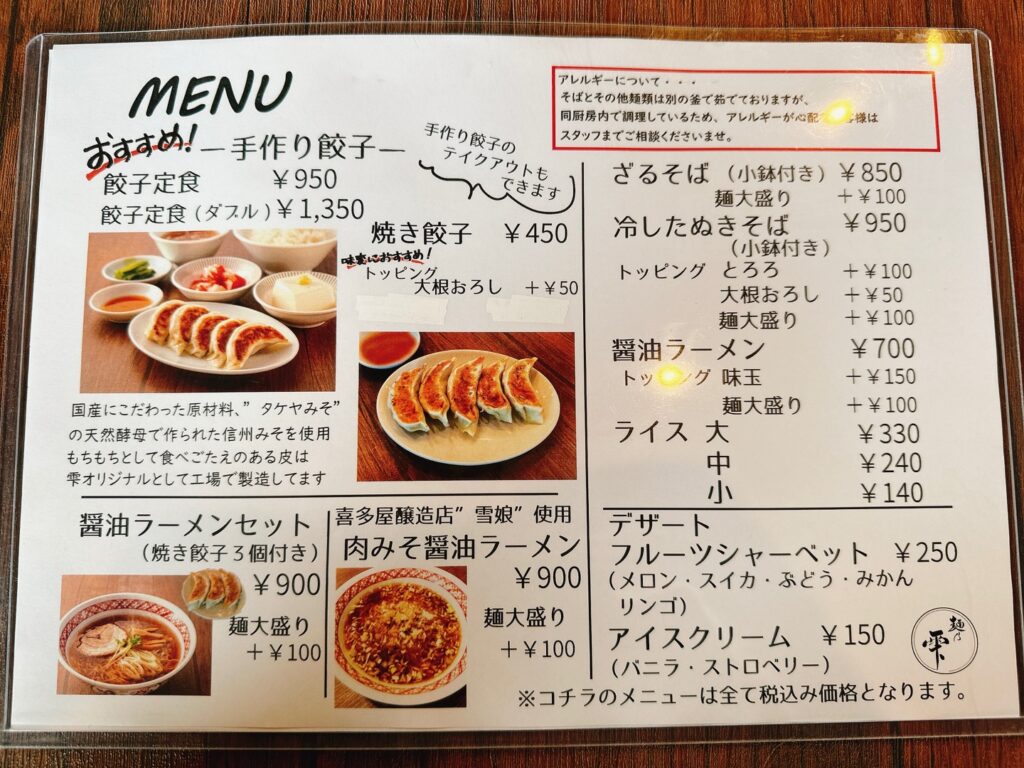 MENU
おすすめ!
ー手作り餃子ー
餃子定食 ￥950
餃子定食 (ダブル) ￥1,350
手作り餃子の
テイクアウトも
できます
焼き餃子 ￥450
味変におすすめ!
トッピング
大根おろし ＋￥50
国産にこだわった原材料、”タケヤみそ”
の天然酵母で作られた信州みそを使用
もちもちとして食べごたえのある皮は
雫オリジナルとして工場で製造してます
醤油ラーメンセット
(焼き餃子３個付き)
￥900
麺大盛り
＋￥100
喜多屋醸造店”雪娘”使用
肉みそ醤油ラーメン
￥900
麺大盛り
＋￥100
アレルギーについて・・・
そばとその他麺類は別の釜で茹でておりますが、
同厨房内で調理しているため、アレルギーが心配 客様は
スタッフまでご相談くださいませ。
ざるそば (小鉢付き) ￥850
麺大盛り ＋￥100
冷したぬきそば ￥950
(小鉢付き)
トッピング とろろ ＋￥100
大根おろし ＋￥50
麺大盛り ＋￥100
醤油ラーメン ￥700
トッピング 味玉 ＋￥150
麺大盛り ＋￥100
ライス 大 ￥330
中 ￥240
小 ￥140
デザート
フルーツシャーベット ￥250
(メロン・スイカ・ぶどう・みかん
リンゴ)
アイスクリーム ￥150
(バニラ・ストロベリー)
麺乃
雫
※コチラのメニューは全て税込み価格となります。